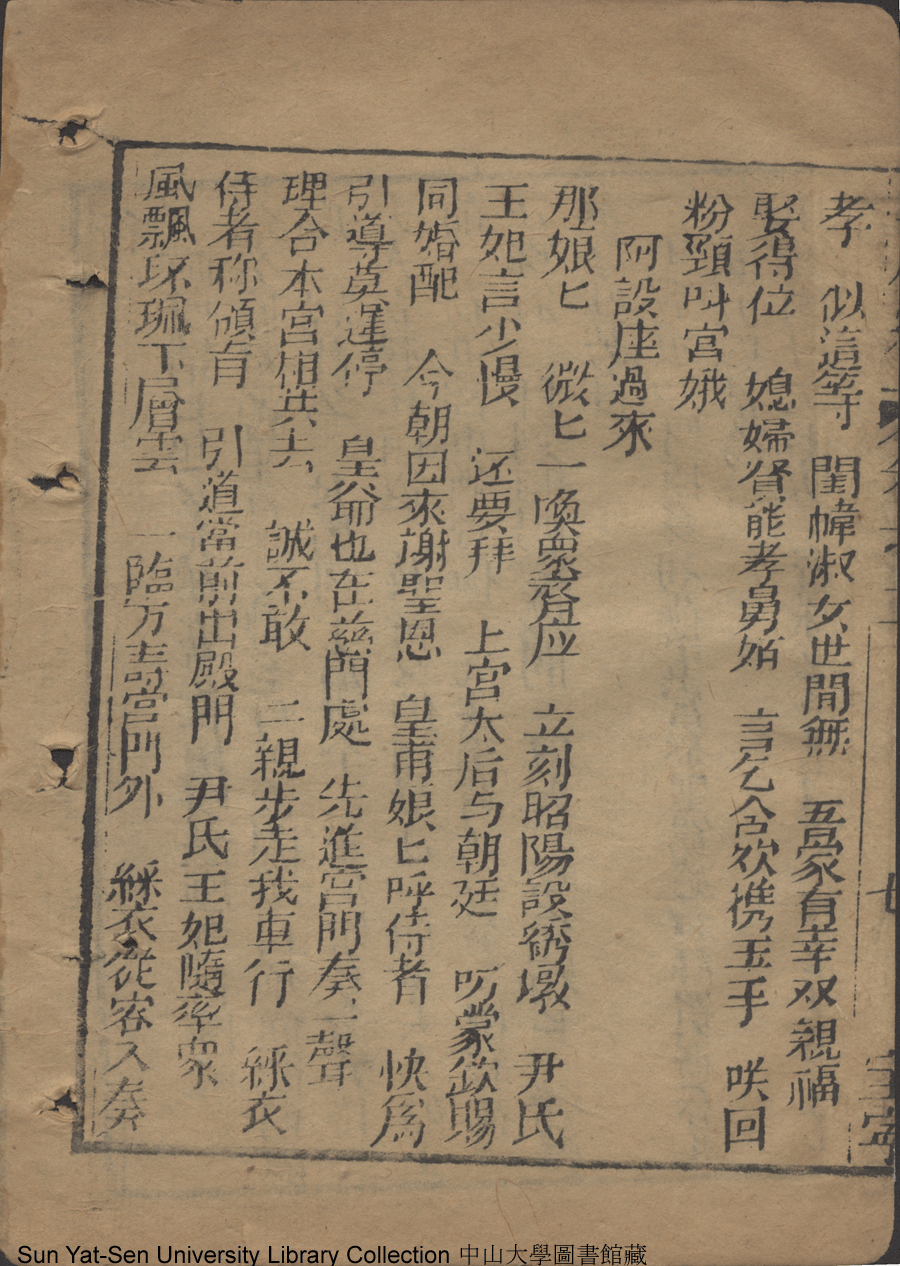 孝　似這等　閨幃淑女世間無　吾家有幸双親福
娶得位　媳婦賢能孝舅姑　言乞含欢携玉手　咲回
粉頸叫宮娥
阿設座過來
那娘匕　微匕一喚衆齊应　立刻昭陽設绣墩　尹氏
王妃言少慢　还要拜　上宮太后与朝廷　叨蒙欽賜
同婚配　今朝因來謝聖恩　皇甫娘匕呼侍者　快爲
引導莫遲停　皇爺也在慈門處　先進宮門奏一聲
理合本宮相共去　誠不敢　二親步走我車行　綵衣
侍者称領旨　引道當前出殿門　尹氏王妃隨率衆
風飄环珮下層雲　一臨万壽宮門外　綵衣從容入奏
Sun Yat-Sen University Library Collection 中山大學圖書館藏